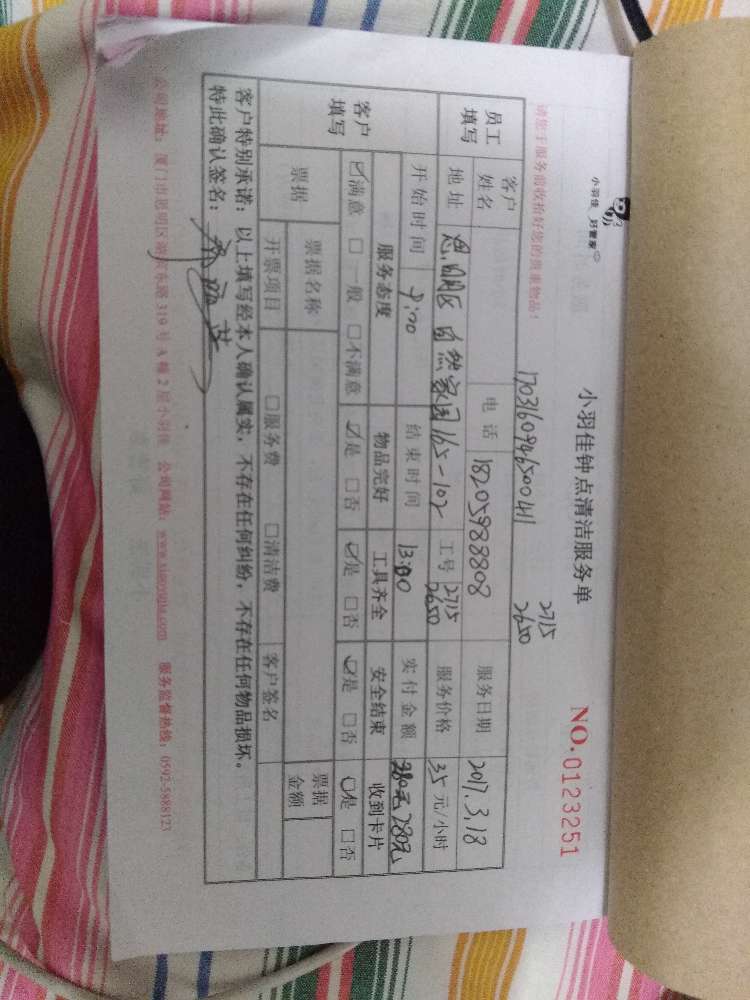 小羽佳 好管家
小羽佳钟点清洁服务单
NO.0123251
170316094650041
2715
2650
请您于服务前收拾好您的贵重物品！
员工填写
客户姓名
电话 18205988808
服务日期 2017.3.18
地址 思明区 自然家园165-102
工号 2715 2650
服务价格 35元/小时
开始时间 9:00
结束时间 13:00
实付金额 280元 280元
客户填写
服务态度 物品完好 工具齐全 安全结束 收到卡片
☑满意 □一般 □不满意 ☑是 □否 ☑是 □否 ☑是 □否 ☑是 □否
票据
票据名称
票据金额
开票项目 □服务费 □清洁费 客户签名
客户特别承诺：以上填写经本人确认属实，不存在任何纠纷，不存在任何物品损坏。
特此确认签名：
公司地址：厦门市思明区湖滨东路319号A幢2层小羽佳 公司网站：www.xiaoyujia.com 服务监督热线：0592-5888123